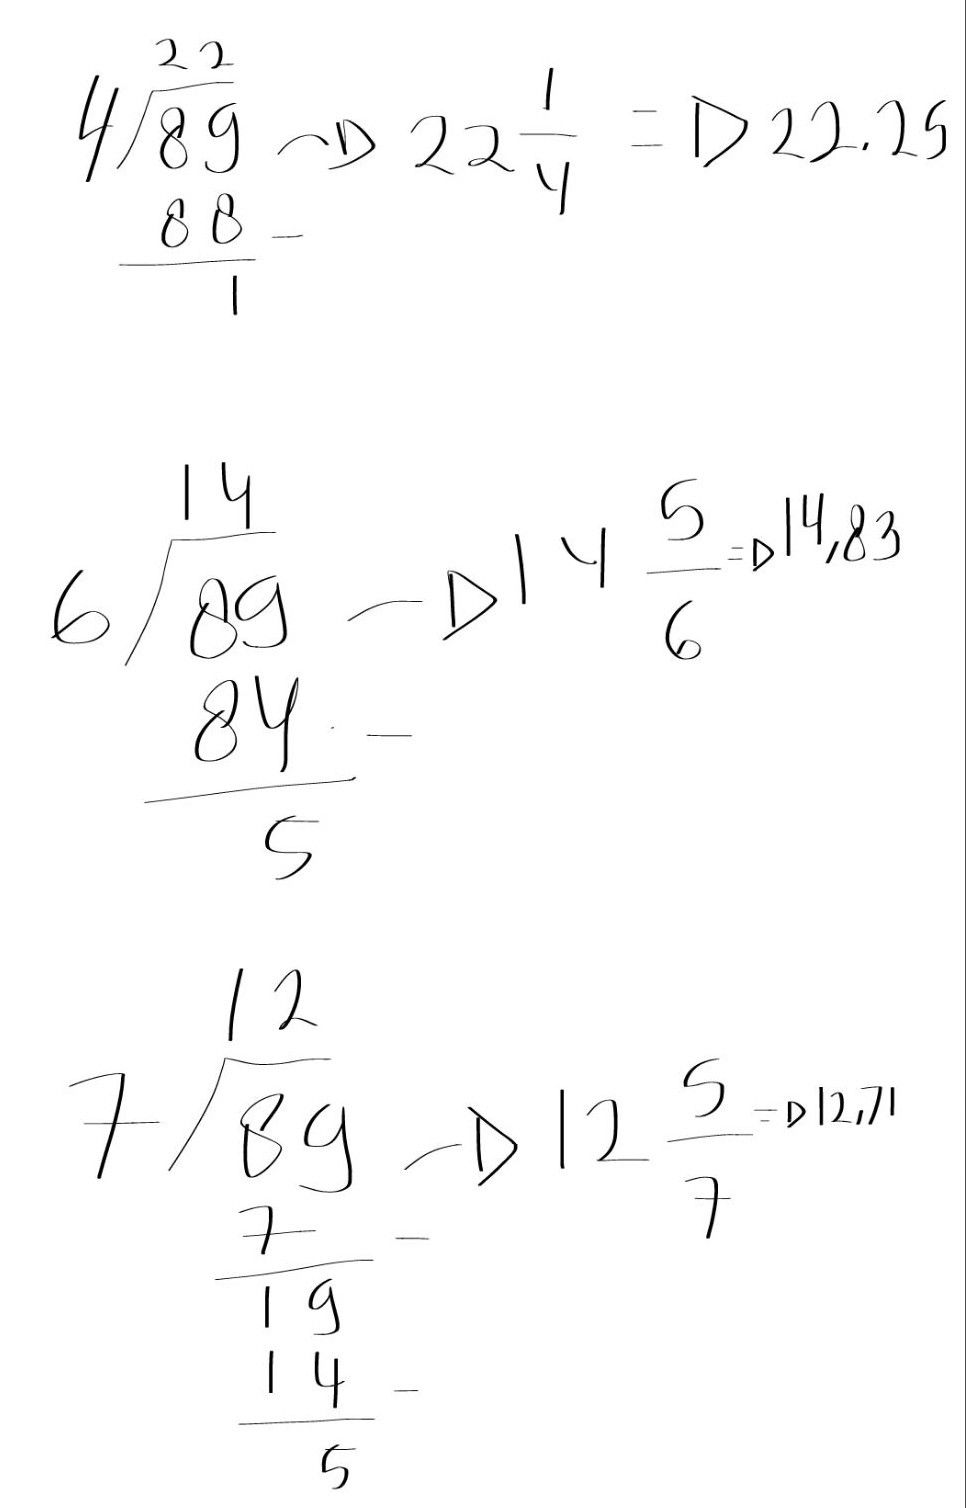 22
4/89 → 22 1/4 => 22.25
88 -
1
14
6/89 → 14 5/6 => 14,83
84 -
5
12
7/89 → 12 5/7 => 12,71
7 -
19
14 -
5